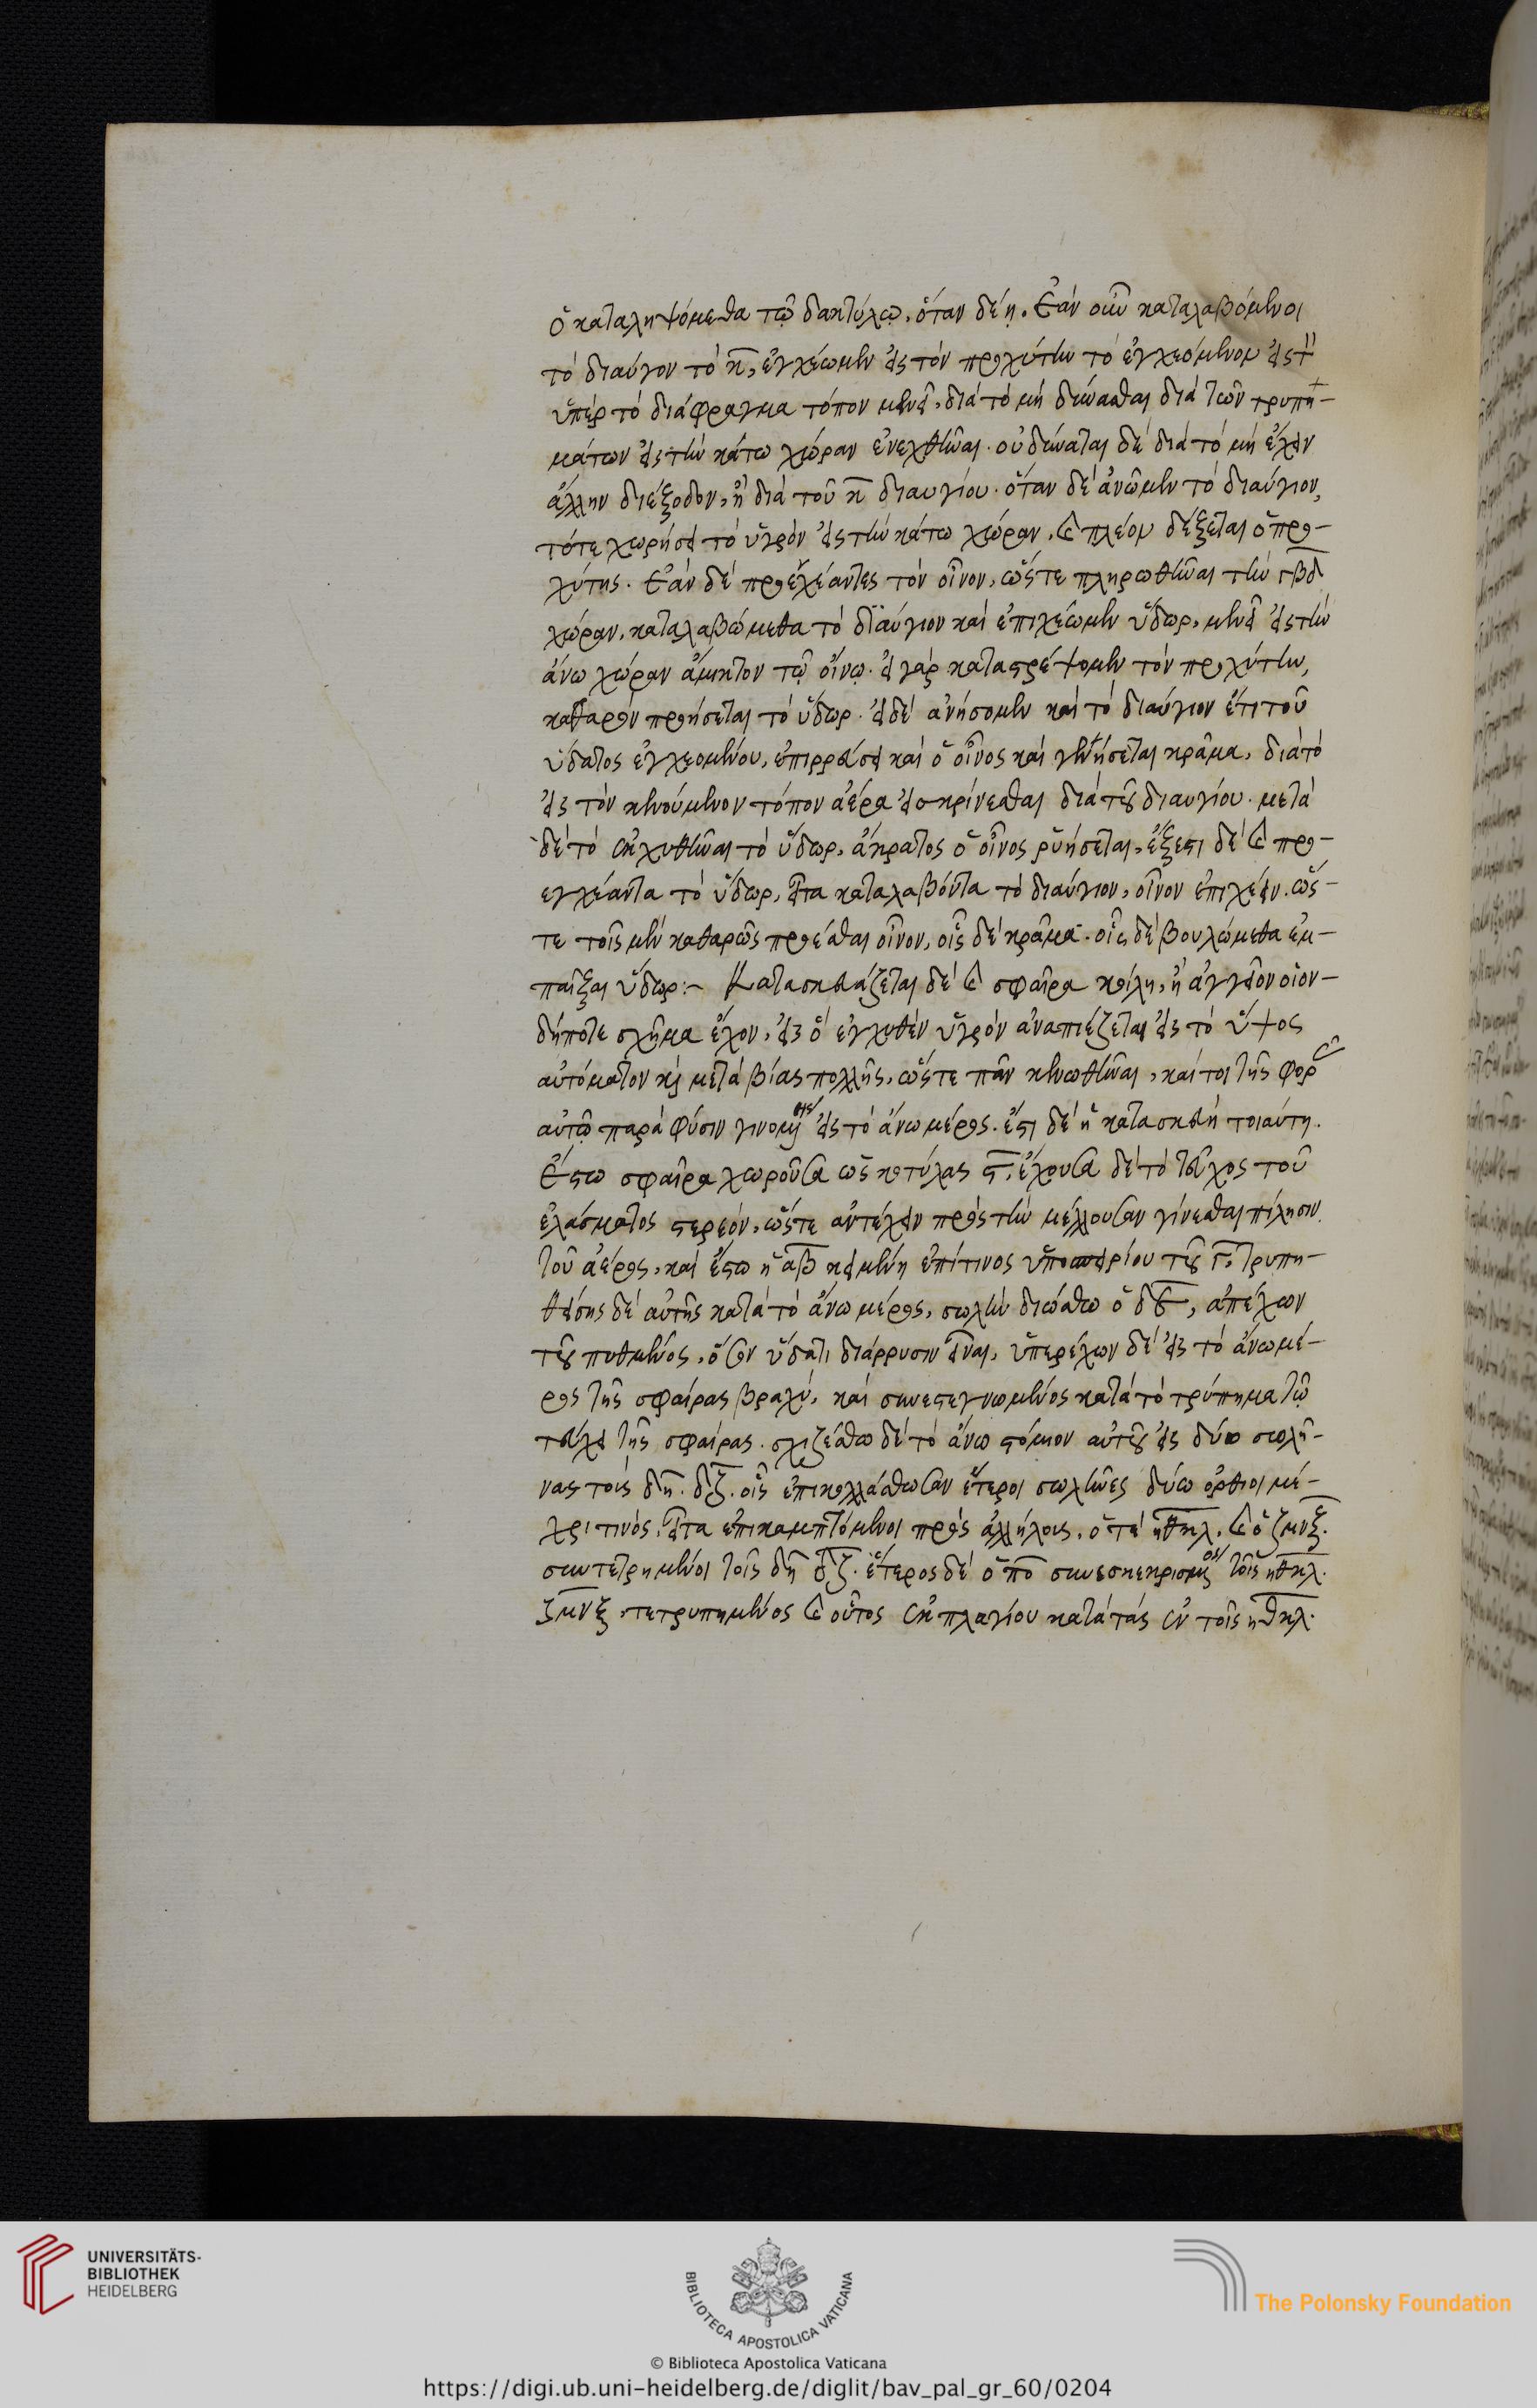 ὃ καταληψόμεθα τῷ δακτύλῳ, ὅταν δέῃ. Ἐὰν οὖν καταλαβόμενοι
τὸ διαύγιον τὸ κ, ἐγχέωμεν εἰς τὸν προχύτην τὸ ἐγχεόμενον εἰς τὸν
ὑπὲρ τὸ διάφραγμα τόπον μενεῖ, διὰ τὸ μὴ δύνασθαι διὰ τῶν τρυπη-
μάτων εἰς τὴν κάτω χώραν ἐνεχθῆναι. οὐ δύναται δὲ διὰ τὸ μὴ ἔχειν
ἄλλην διέξοδον, ἢ διὰ τοῦ κ διαυγίου. ὅταν δὲ ἀνῶμεν τὸ διαύγιον,
τότε χωρήσει τὸ ὑγρὸν εἰς τὴν κάτω χώραν, καὶ πλεῖον δέξεται ὁ προ-
χύτης. Ἐὰν δὲ προεγχέαντες τὸν οἶνον, ὥστε πληρωθῆναι τὴν γβδ
χώραν, καταλαβώμεθα τὸ διαύγιον καὶ ἐπιχέωμεν ὕδωρ, μενεῖ εἰς τὴν
ἄνω χώραν ἄμικτον τῷ οἴνῳ. εἰ γὰρ καταστρέψομεν τὸν προχύτην,
καθαρὸν προήσεται τὸ ὕδωρ. εἰ δὲ ἀνήσομεν καὶ τὸ διαύγιον ἔτι τοῦ
ὕδατος ἐγχεομένου, ἐπιρρεύσει καὶ ὁ οἶνος καὶ γενήσεται κρᾶμα, διὰ τὸ
εἰς τὸν κενούμενον τόπον ἀέρα εἰσκρίνεσθαι διὰ τοῦ διαυγίου. μετὰ
δὲ τὸ ἐκχυθῆναι τὸ ὕδωρ, ἄκρατος ὁ οἶνος ῥυήσεται, ἔξεστι δὲ καὶ προ-
εγχέαντα τὸ ὕδωρ, εἶτα καταλαβόντα τὸ διαύγιον, οἶνον ἐπιχέειν. ὥσ-
τε τοῖς μὲν καθαρῶς προέσθαι οἶνον, οἷς δὲ κρᾶμα. οἷς δὲ βουλώμεθα ἐμ-
παῖξαι ὕδωρ:~ Κατασκευάζεται δὲ καὶ σφαῖρα κοίλη, ἢ ἀγγεῖον οἷον-
δήποτε σχῆμα ἔχον, εἰς ὃ ἐγχυθὲν ὑγρὸν ἀναπιέζεται εἰς τὸ ὕψος
αὐτόματον καὶ μετὰ βίας πολλῆς, ὥστε πᾶν κενωθῆναι, καί τοι τῆς φορᾶς
αὐτῷ παρὰ φύσιν γινομένης εἰς τὸ ἄνω μέρος. ἔστι δὲ ἡ κατασκευὴ τοιαύτη.
Ἔστω σφαῖρα χωροῦσα ὡς κοτύλας ϛ, ἔχουσα δὲ τὸ τεῦχος τοῦ
ἐλάσματος στερεόν, ὥστε ἀντέχειν πρὸς τὴν μέλλουσαν γίνεσθαι πίλησιν
τοῦ ἀέρος, καὶ ἔστω ἡ αβ κειμένη ἐπί τινος ὑποσπειρίου τοῦ γ, τρυπη-
θείσης δὲ αὐτῆς κατὰ τὸ ἄνω μέρος, σωλὴν διώσθω ὁ δε, ἀπέχων
τοῦ πυθμένος, ὅσον ὕδατι διάρρυσιν εἶναι, ὑπερέχων δὲ εἰς τὸ ἄνω μέ-
ρος τῆς σφαίρας βραχύ, καὶ συνεστεγνωμένος κατὰ τὸ τρύπημα τῷ
τεύχει τῆς σφαίρας. σχιζέσθω δὲ τὸ ἄνω στόμιον αὐτοῦ εἰς δύο σωλῆ-
νας τοὺς δη. δζ. οἷς ἐπικολλάσθωσαν ἕτεροι σωλῆνες δύω ὄρθιοι μέ-
χρι τινός. εἶτα ἐπικαμπτόμενοι πρὸς ἀλλήλους, ὅ τε ηθκλ, καὶ ὁ ζμνξ.
συντετρημένοι τοῖς δη δζ. ἕτερος δὲ ὁ πο συνεσκεκρισμένος τοῖς ηθκλ.
ζμνξ, τετρυπημένος καὶ οὗτος ἐκ πλαγίου κατὰ τὰς ἐν τοῖς ηθκλ.
UNIVERSITÄTS-
BIBLIOTHEK
HEIDELBERG
BIBLIOTECA APOSTOLICA VATICANA
The Polonsky Foundation
© Biblioteca Apostolica Vaticana
https://digi.ub.uni-heidelberg.de/diglit/bav_pal_gr_60/0204